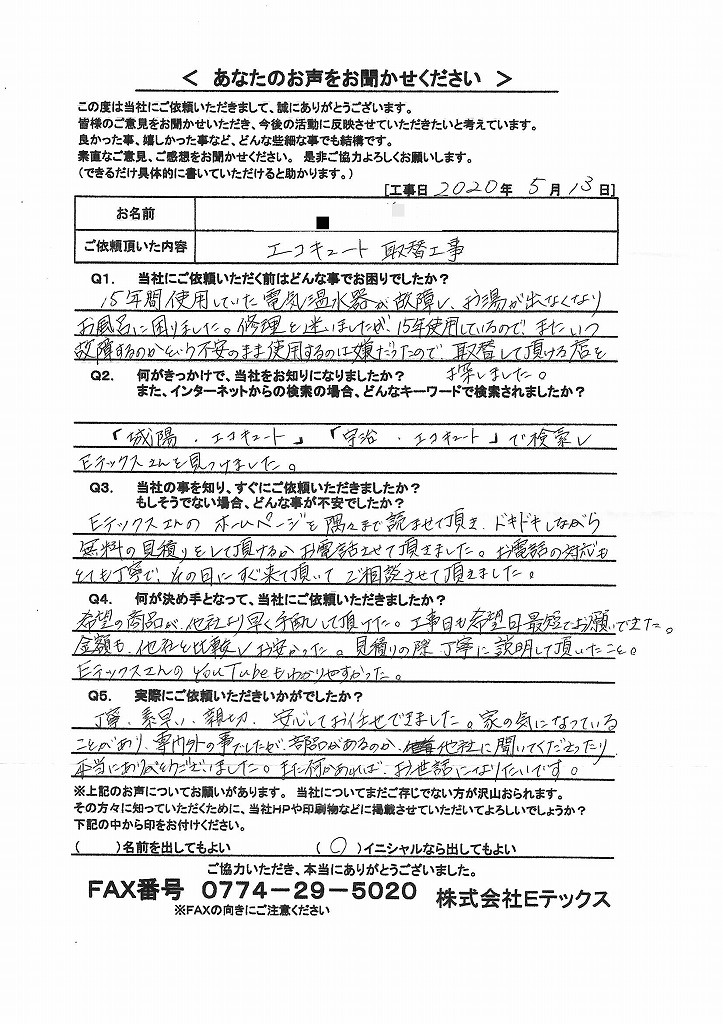 ＜ あなたのお声をお聞かせください ＞
この度は当社にご依頼いただきまして、誠にありがとうございます。
皆様のご意見をお聞かせいただき、今後の活動に反映させていただきたいと考えています。
良かった事、嬉しかった事など、どんな些細な事でも結構です。
素直なご意見、ご感想をお聞かせください。 是非ご協力よろしくお願いします。
（できるだけ具体的に書いていただけると助かります。）
[工事日 2020年 5月 13日]
お名前
ご依頼頂いた内容 エコキュート 取替工事
Q1. 当社にご依頼いただく前はどんな事でお困りでしたか？
15年間使用していた電気温水器が故障し、お湯が出なくなり
お風呂に困りました。修理と迷いましたが、15年使用しているので、またいつ
故障するのかという不安のまま使用するのは嫌だったので、取替して頂ける店を
探しました。
Q2. 何がきっかけで、当社をお知りになりましたか？
また、インターネットからの検索の場合、どんなキーワードで検索されましたか？
「城陽 . エコキュート」「宇治 . エコキュート」で検索し
Eテックスさんを見つけました。
Q3. 当社の事を知り、すぐにご依頼いただきましたか？
もしそうでない場合、どんな事が不安でしたか？
Eテックスさんの ホームページを 隅々まで 読ませて頂き、ドキドキしながら
無料の見積りをして頂けるかお電話させて頂きました。お電話の対応も
とても丁寧で、その日にすぐ来て頂いて ご相談させて頂きました。
Q4. 何が決め手となって、当社にご依頼いただきましたか？
希望の商品が、他社より早く手配して頂けた。工事日も希望日最短でお願いできた。
金額も、他社と比較しお安かった。見積りの際 丁寧に説明して頂いたこと。
EテックスさんのYouTubeもわかりやすかった。
Q5. 実際にご依頼いただきいかがでしたか？
丁寧、素早い、親切、安心してお任せできました。家の気になっている
ことがあり、専門外の事でしたが、部品があるのか、他社に聞いてくださったり
本当にありがとうございました。また何かあれば、お世話になりたいです。
※上記のお声についてお願いがあります。 当社についてまだご存じでない方が沢山おられます。
その方々に知っていただくために、当社HPや印刷物などに掲載させていただいてよろしいでしょうか？
下記の中から印をお付けください。
（ ）名前を出してもよい （○）イニシャルなら出してもよい
ご協力いただき、本当にありがとうございました。
FAX番号 0774－29－5020 株式会社Eテックス
※FAXの向きにご注意ください